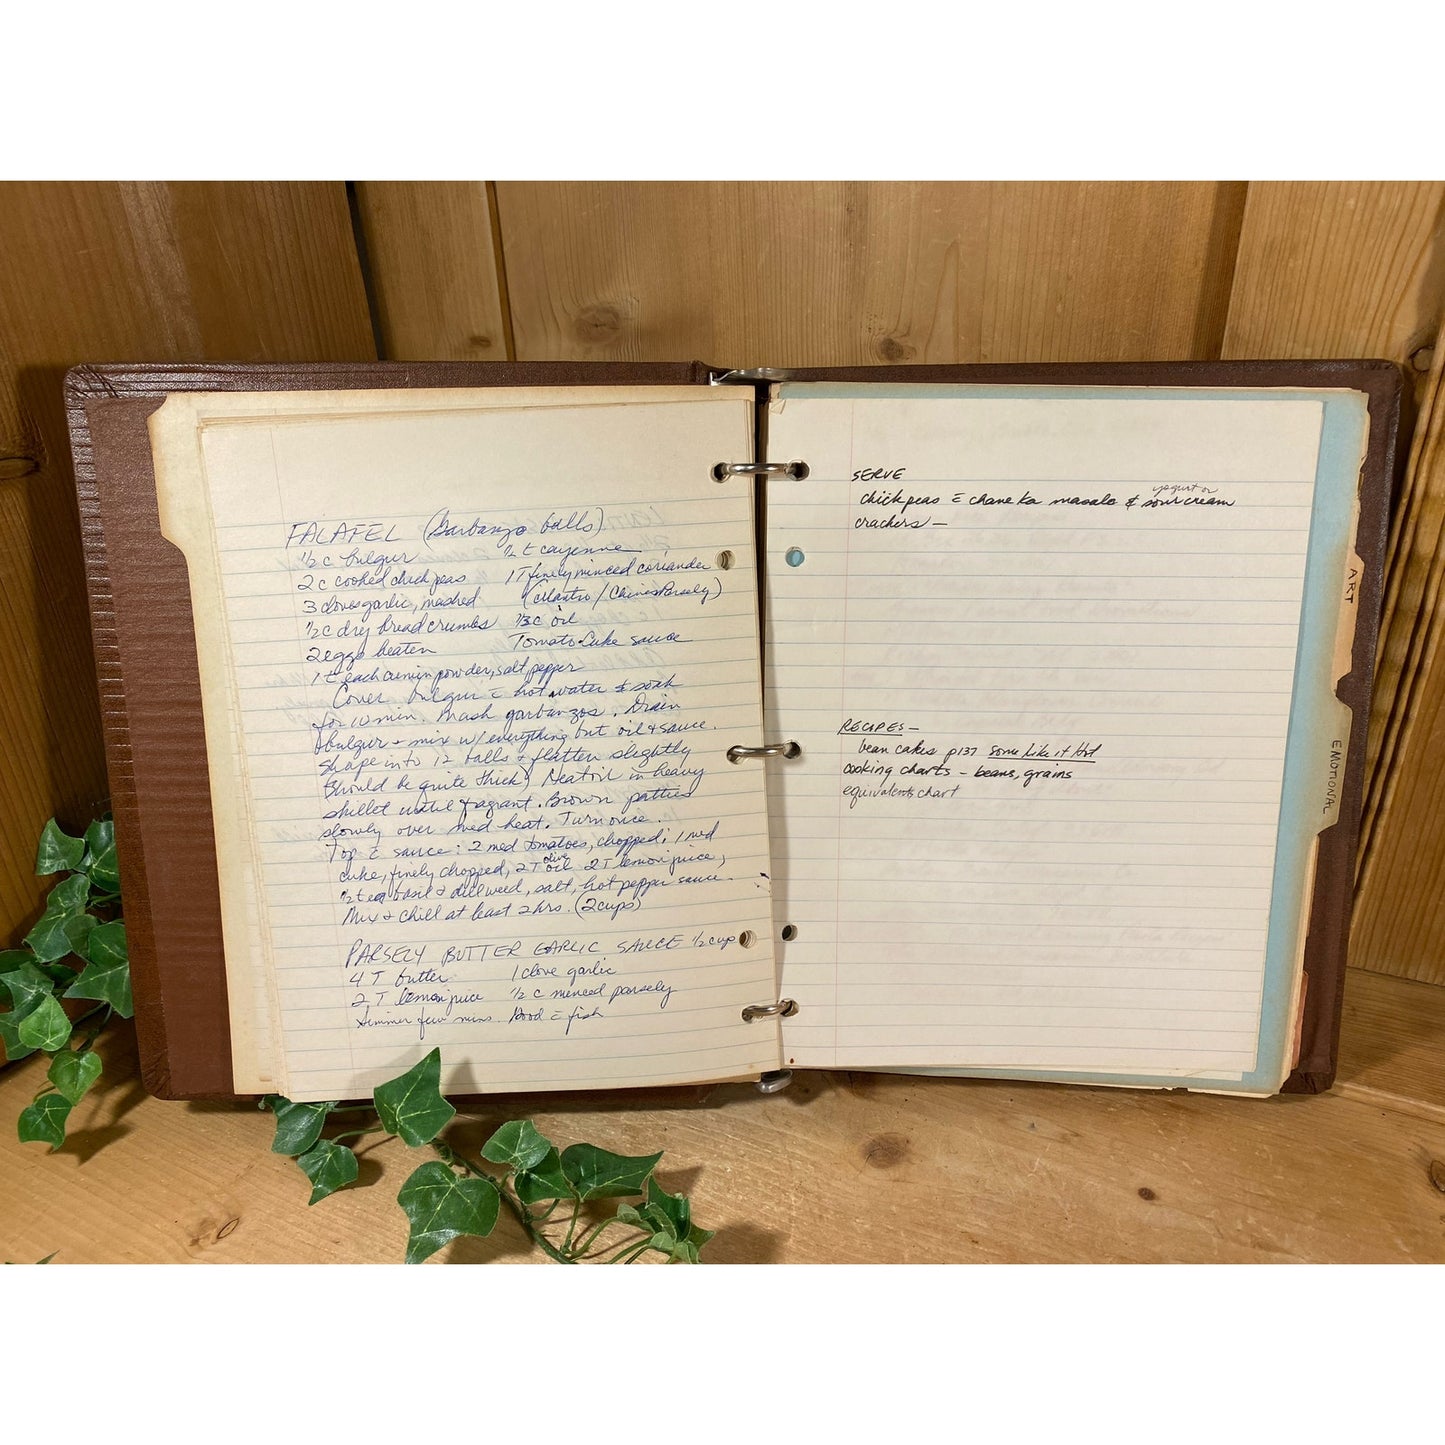 FALAFEL (Garbanzo balls)
1/2 c bulgur 1/2 t cayenne
2 c cooked chick peas 1 T finely minced coriander
3 cloves garlic, mashed (cilantro / Chinese Parsely)
1/2 c dry bread crumbs 1/3 c oil
2 eggs beaten Tomato Cuke sauce
1 t each cumin powder, salt, pepper
Cover bulgur c̄ hot water & soak
for 10 min. Mash garbanzos. Drain
bulgur + mix w/ everything but oil + sauce.
Shape into 12 balls + flatten slightly
(should be quite thick) Heat oil in heavy
skillet until fragrant. Brown patties
slowly over med heat. Turn once.
Top c̄ sauce: 2 med tomatoes, chopped; 1 med
cuke, finely chopped, 2 T olive oil 2 T lemon juice,
1/2 t ea basil + dillweed, salt, hot pepper sauce.
Mix + chill at least 2 hrs. (2 cups)
PARSELY BUTTER GARLIC SAUCE 1/2 cup
4 T butter 1 clove garlic
2 T lemon juice 1/2 c minced parsely
Simmer few mins. Good c̄ fish
SERVE
chick peas c̄ chane ka masala & yogurt or sour cream
crackers —
RECIPES —
bean cakes p137 Some Like it Hot
cooking charts - beans, grains
equivalents chart
ART
EMOTIONAL